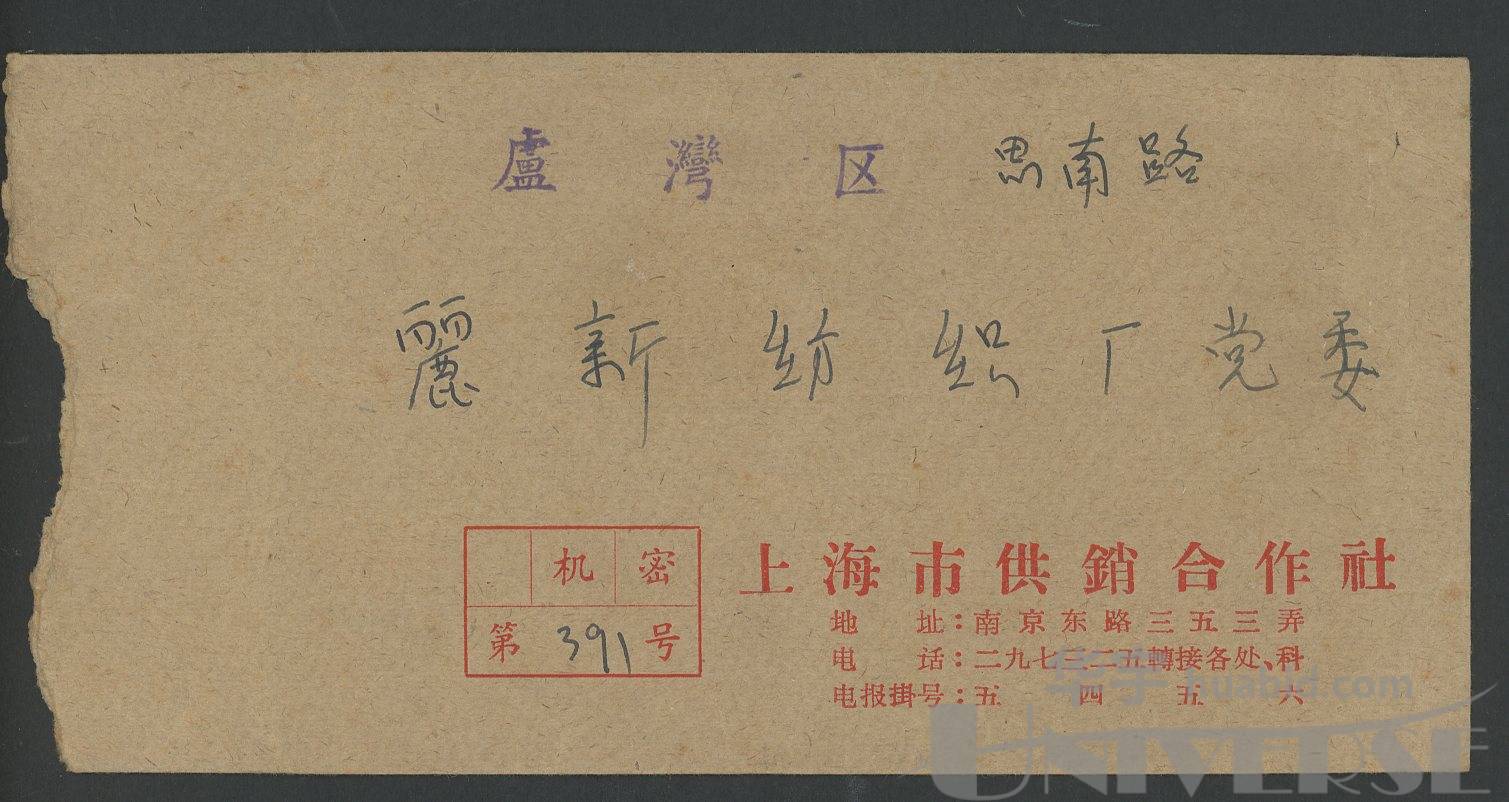 盧灣区 思南路
麗新纺织厂党委
机密
第391号
上海市供銷合作社
地址：南京东路三五三弄
电话：二九七三二五轉接各处、科
电报掛号：五四五六
华宇 huabid.com
UNIVERSE